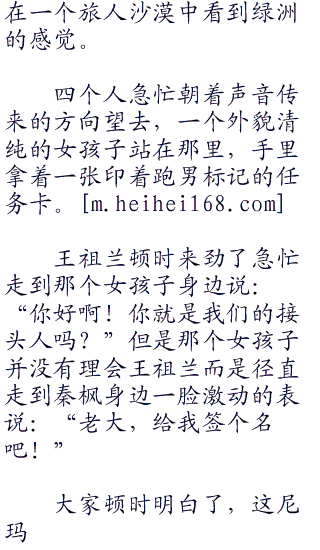 在一个旅人沙漠中看到绿洲
的感觉。
四个人急忙朝着声音传
来的方向望去，一个外貌清
纯的女孩子站在那里，手里
拿着一张印着跑男标记的任
务卡。[m.heihei168.com]
王祖兰顿时来劲了急忙
走到那个女孩子身边说：
“你好啊！你就是我们的接
头人吗？”但是那个女孩子
并没有理会王祖兰而是径直
走到秦枫身边一脸激动的表
说：“老大，给我签个名
吧！”
大家顿时明白了，这尼
玛